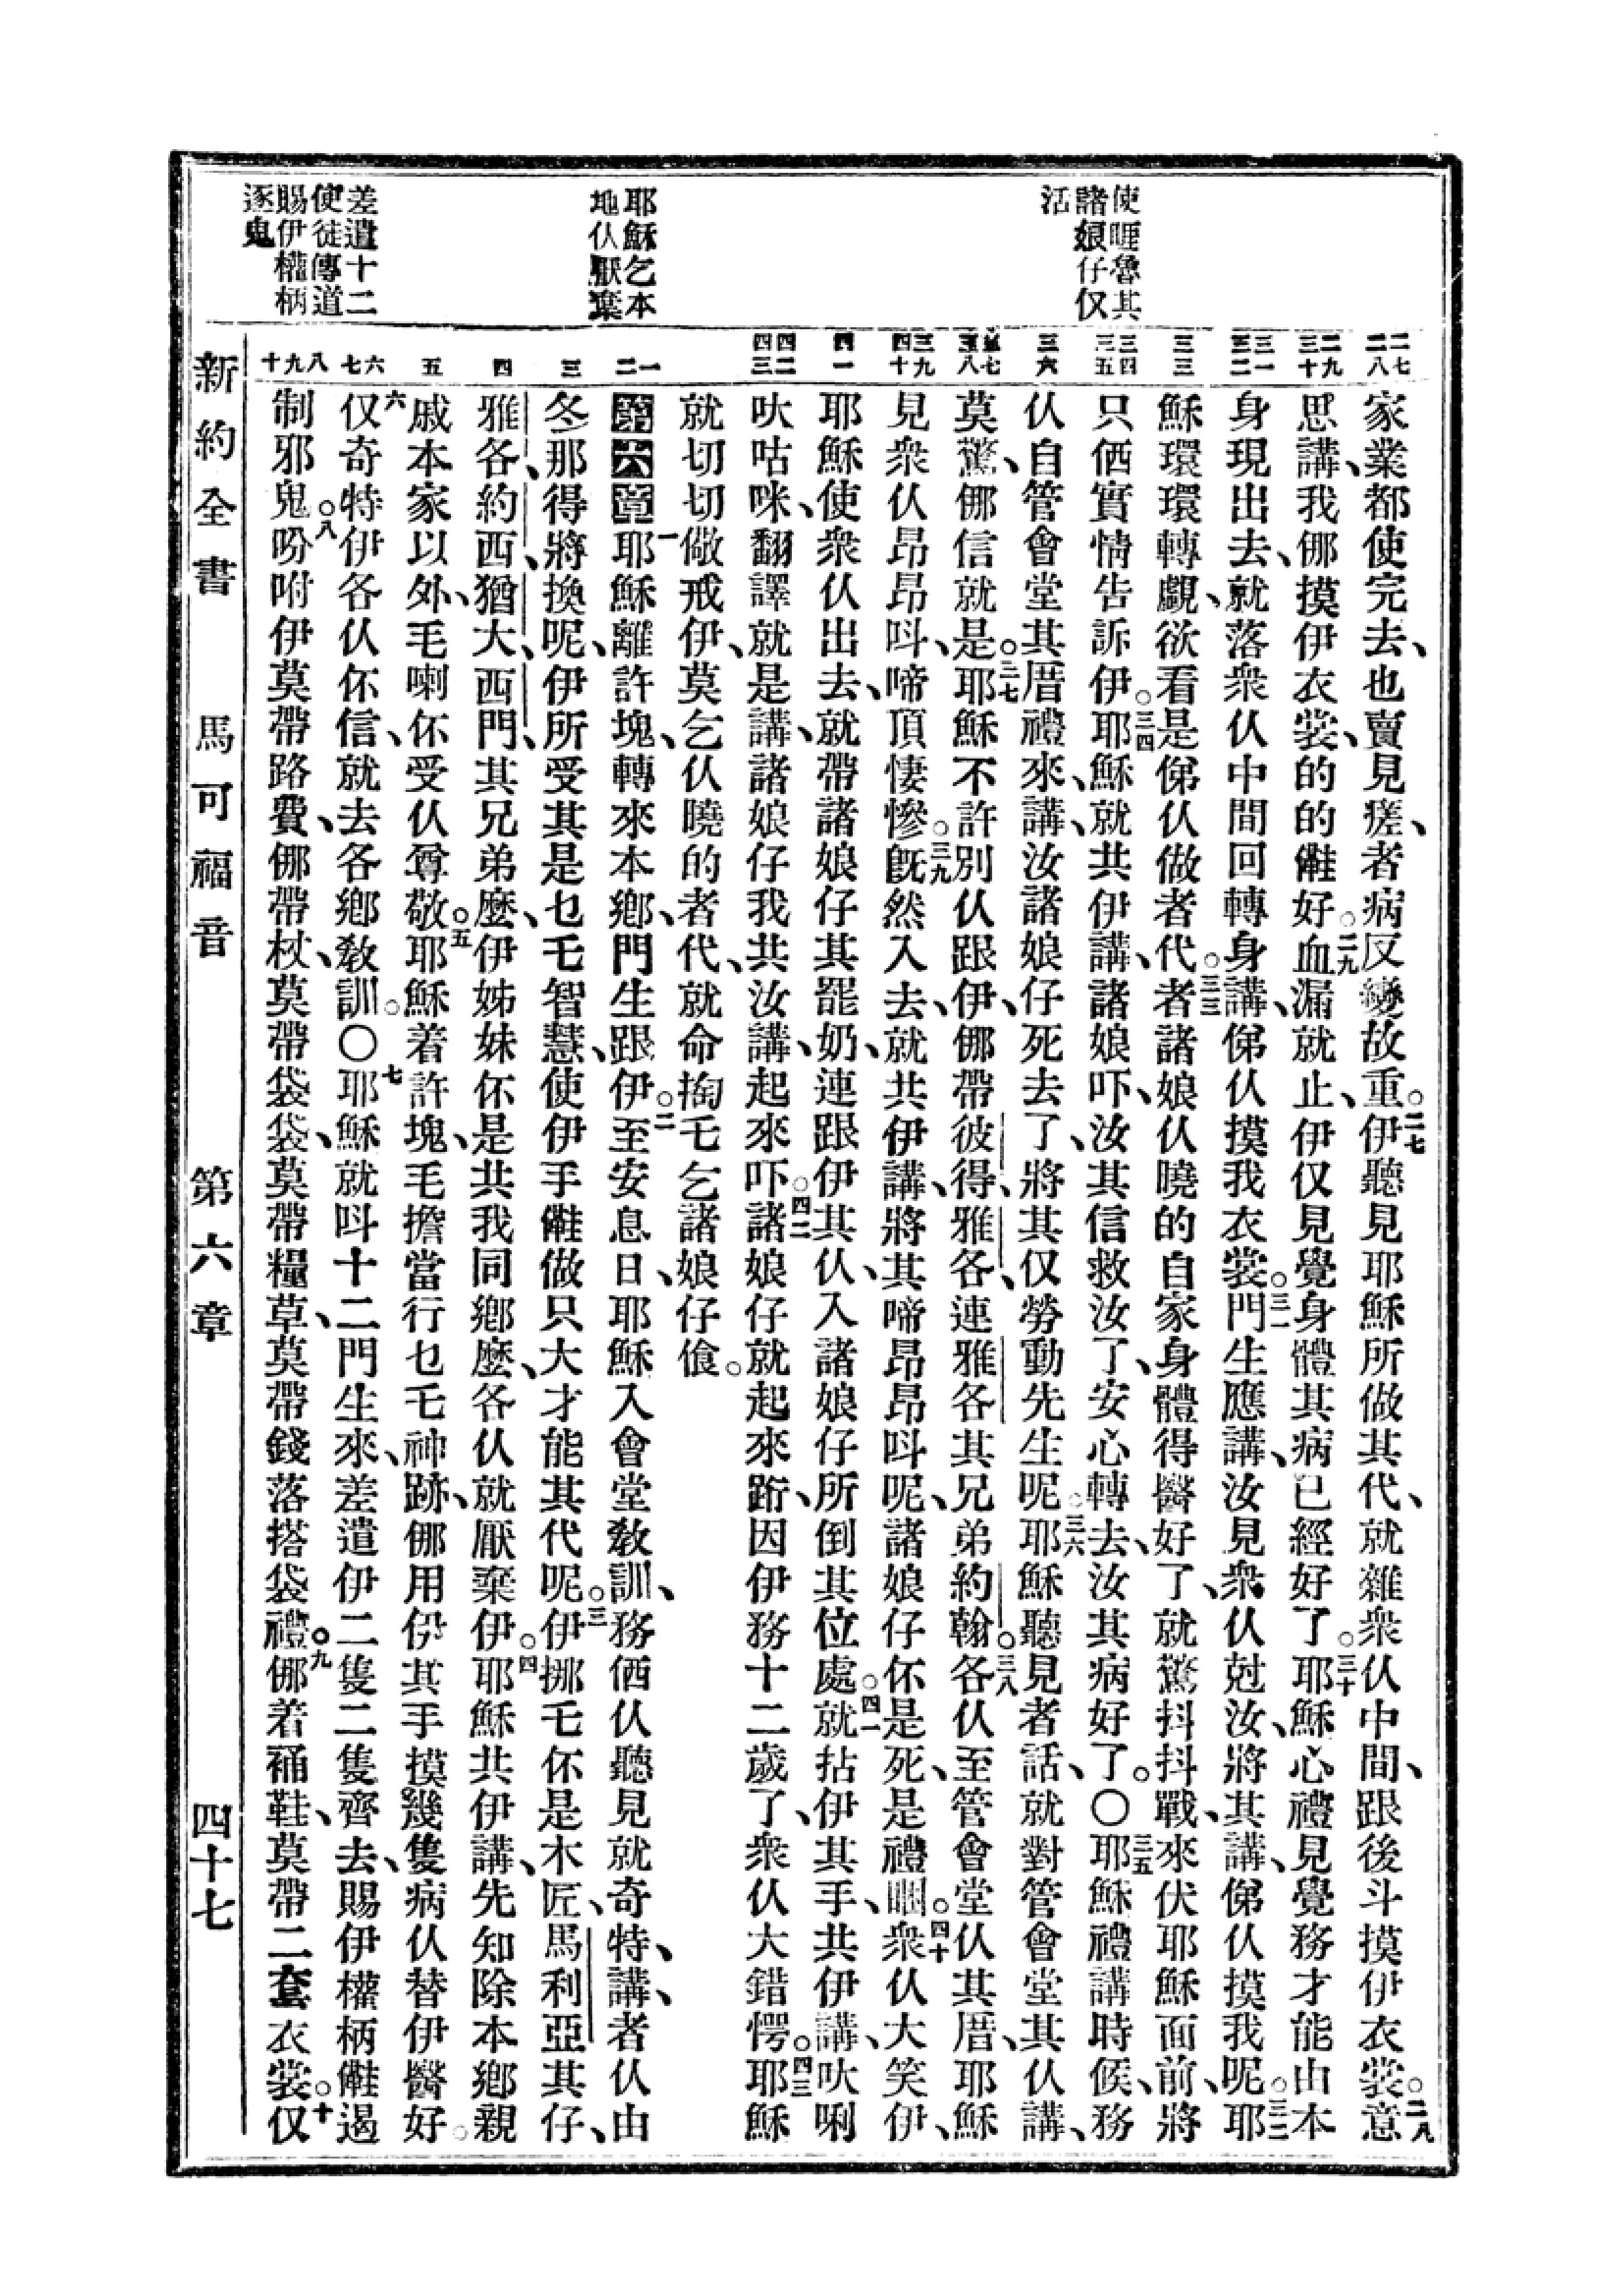 使睚魯其
諸娘仔仅
活
耶穌乞本
地仈厭棄
差遣十二
使徒傳道
賜伊權柄
逐鬼
二七 二八
二九 三十
三一 三二
三三
三四 三五
三六
三七 三八
三九 四十
四一
四二 四三
一 二
三
四
五
六 七
八 九 十
家業都使完去、也賣見瘥、者病反變故重。二七伊聽見耶穌所做其代、就雜衆仈中間、跟後斗摸伊衣裳。二八意
思講、我㑚摸伊衣裳、的的𠌥好。二九血漏就止、伊仅見覺身體其病已經好了。三十耶穌心禮見覺務才能由本
身現出去、就落衆仈中間回轉身講、俤仈摸我衣裳。三一門生應講、汝見衆仈尅汝、將其講、俤仈摸我呢。三二耶
穌環環轉覷、欲看是俤仈做者代。三三者諸娘仈曉的自家身體得醫好了、就驚抖抖戰、來伏耶穌面前、將
只𠲿實情告訴伊。三四耶穌就共伊講、諸娘吓、汝其信救汝了、安心轉去、汝其病好了。〇三五耶穌禮講時候、務
仈自管會堂其厝禮來、講、汝諸娘仔死去了、將其仅勞動先生呢。三六耶穌聽見者話、就對管會堂其仈講、
莫驚、㑚信就是。三七耶穌不許別仈跟伊、㑚帶彼得、雅各、連雅各其兄弟約翰。三八各仈至管會堂仈其厝、耶穌
見衆仈昂昂呌、啼頂悽慘。三九旣然入去、就共伊講、將其啼昂昂呌呢、諸娘仔伓是死、是禮睏。四十衆仈大笑伊、
耶穌使衆仈出去、就帶諸娘仔其罷奶、連跟伊其仈、入諸娘仔所倒其位處。四一就拈伊其手、共伊講、吙唎
吙咕咪、翻譯就是講、諸娘仔我共汝講、起來吓。四二諸娘仔就起來跲、因伊務十二歲了、衆仈大錯愕。四三耶穌
就切切儆戒伊、莫乞仈曉的者代、就命掏乇乞諸娘仔飡。
第六章 一耶穌離許塊、轉來本鄉、門生跟伊。二至安息日、耶穌入會堂敎訓、務𠲿仈聽見就奇特、講、者仈由
冬那得將換呢、伊所受其是乜乇智慧、使伊手𠌥做只大才能其代呢。三伊挪乇伓是木匠、馬利亞其仔、
雅各、約西、猶大、西門、其兄弟麽、伊姊妹伓是共我同鄉麽、各仈就厭棄伊。四耶穌共伊講、先知除本鄉親
戚本家以外、毛喇伓受仈尊敬。五耶穌着許塊、毛擔當行乜乇神跡、㑚用伊其手摸幾隻病仈替伊醫好。
六仅奇特伊各仈伓信、就去各鄉敎訓。〇七耶穌就呌十二門生來、差遣伊二隻二隻齊去、賜伊權柄𠌥遏
制邪鬼。八吩咐伊莫帶路費、㑚帶杖、莫帶袋袋、莫帶糧草、莫帶錢落搭袋禮。九㑚着補鞋、莫帶二套衣裳。十仅
新約全書 馬可福音 第六章 四十七